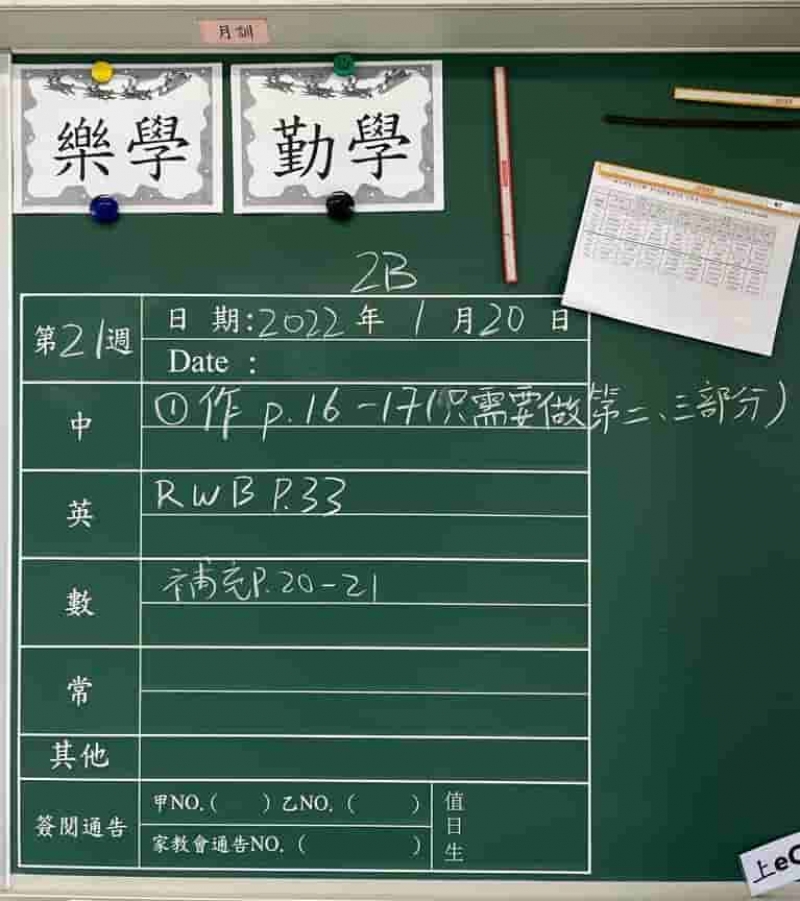 月訓
樂學
勤學
2B
第21週
日 期:2022年 1 月20 日
Date :
中
①作 p.16-17(只需要做第二、三部分)
英
RWB P.33
數
補充P.20-21
常
其他
簽閱通告
甲NO.( ) 乙NO. ( )
家教會通告NO. ( )
值日生
上eC